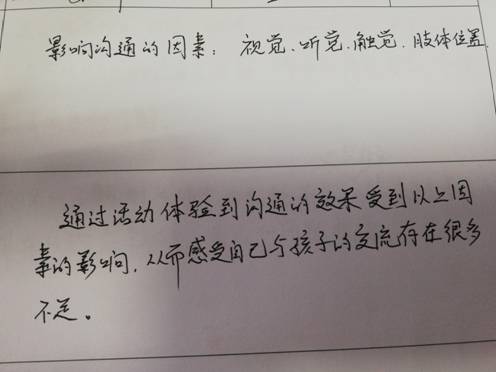 影响沟通的因素：视觉、听觉、触觉、肢体位置
通过活动体验到沟通的效果受到以上因
素的影响，从而感受自己与孩子的交流存在很多
不足。